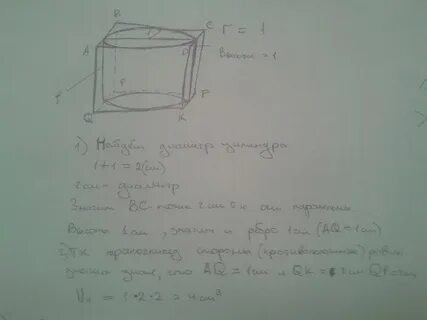 B
C
r = 1
A
D
Высота = 1
P
F
P
Q
K
1) Найдём диаметр цилиндра
1+1=2(см)
2см - диаметр
Значит BC тоже 2 см т.к они параллельны
Высота 1 см, значит и ребро 1 см (AQ=1см)
2) Тк прямоугольн стороны (противоположные) равны
значит, что AQ = 1 см и QK = 2 см QP=2см
V = 1·2·2 = 4 см³